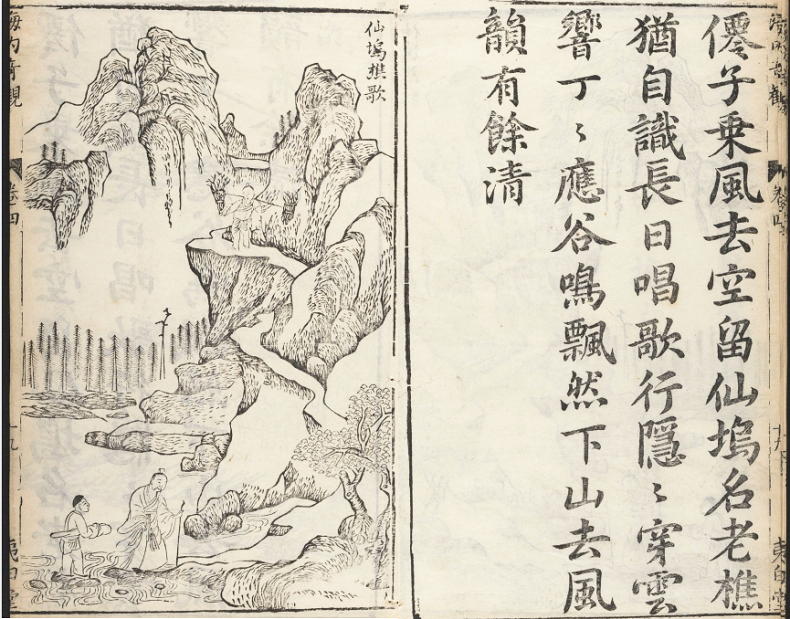 僊子乗風去空留仙塢名老樵
猶自識長日唱歌行隱〻穿雲
響丁〻應谷鳴飄然下山去風
韻有餘清
仙塢樵歌
海内奇觀
卷四
十九
夷白堂